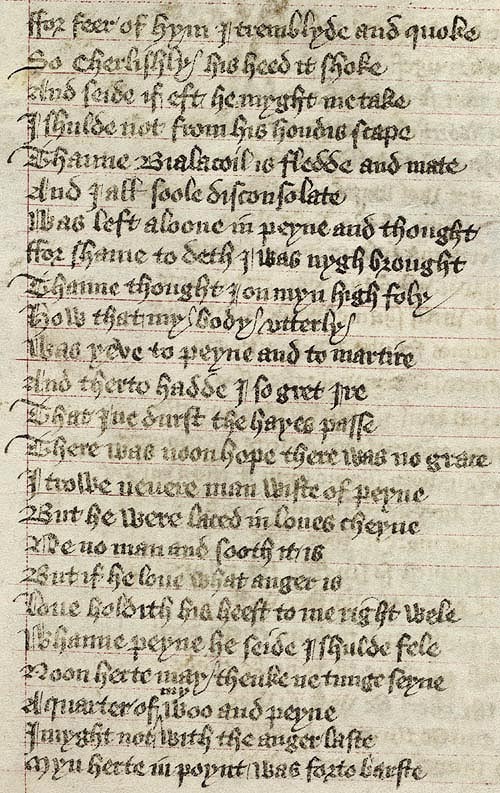 ffor feer of hym I tremblyde and quoke
So cherlishly his heed it shoke
And seide if eft he myght me take
I shulde not from his hondis scape
Thanne Bialacoil is fledde and mate
And I all soole disconsolate
Was left aloone in peyne and thought
ffor shame to deth I was nygh brought
Thanne thought I on myn high foly
How that my body vtterly
Was yeve to peyne and to martire
And therto hadde I so gret Ire
That I ne durst the hayes passe
There was noon hope there was no grace
I trowe nevere man wiste of peyne
But he were laced in loues cheyne
Ne no man and sooth it is
But if he loue what anger is
Loue holdith his heest to me right wele
Whanne peyne he seide I shulde fele
Noon herte may thenke ne tunge seyne
A quarter of my woo and peyne
I myght not with the anger laste
Myn herte in poynt was forto barste